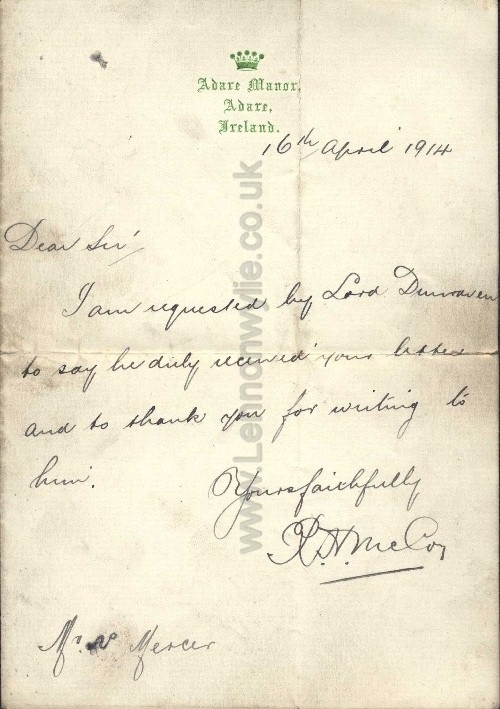 Adare Manor,
Adare,
Ireland.
16th April 1914
Dear Sir
I am requested by Lord Dunraven
to say he duly received your letter
and to thank you for writing to
him.
Yours faithfully
McCoy
Mr Mercer
www.Lennonwylie.co.uk